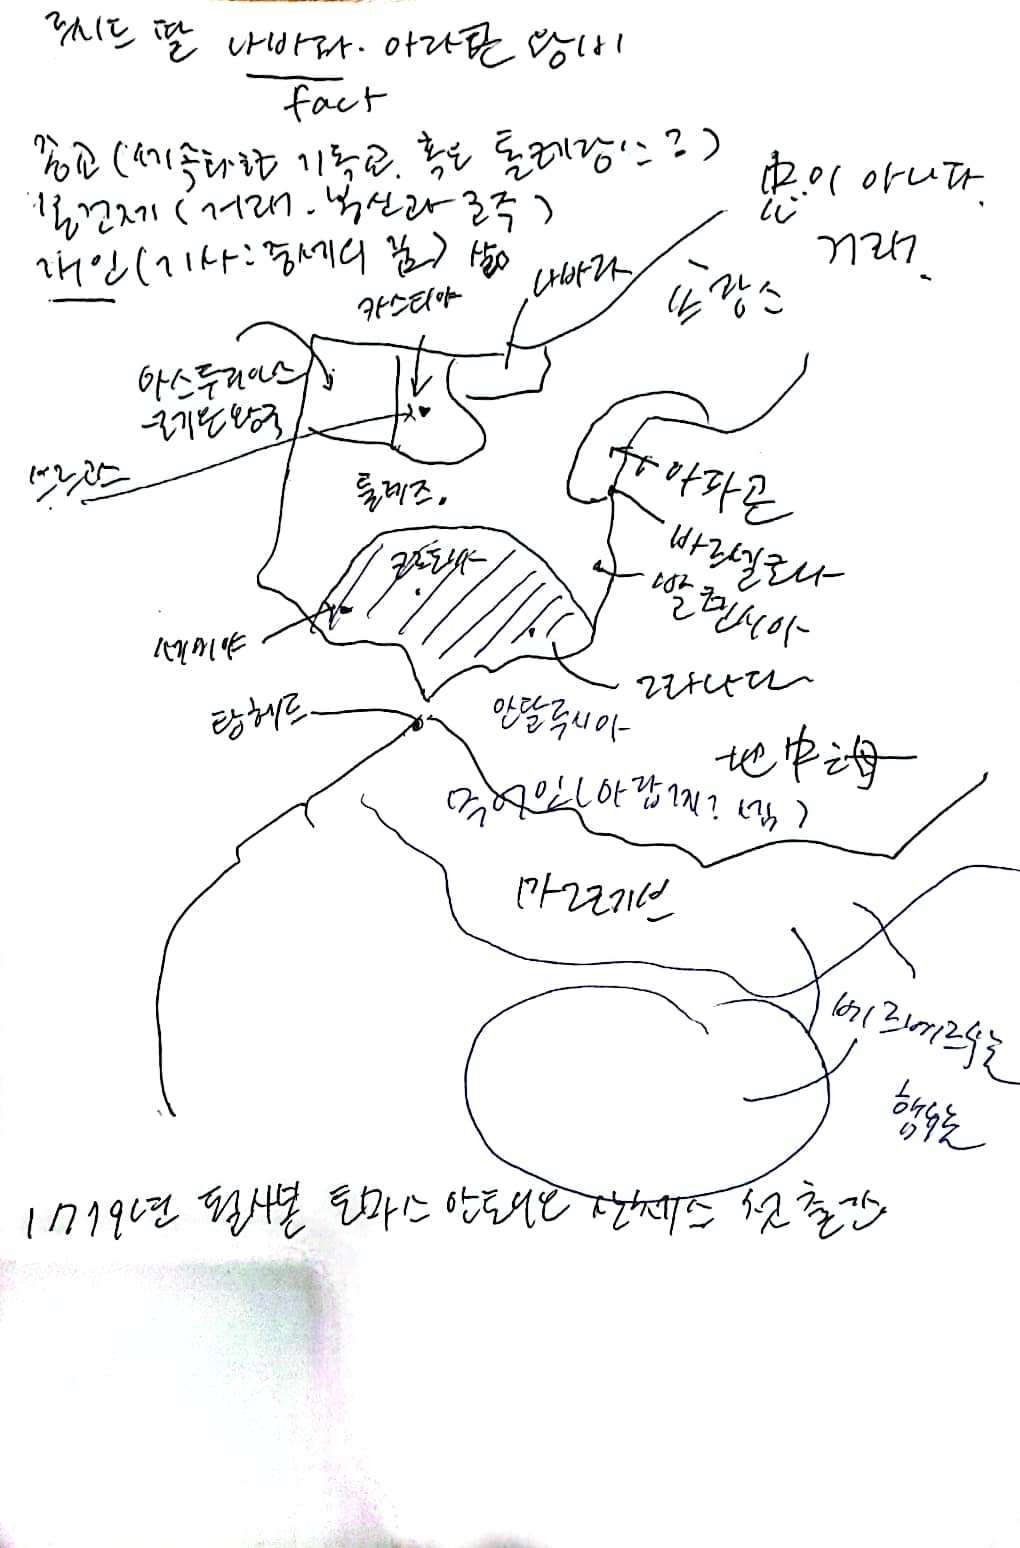 딸 나바라. 아라곤 왕비
fact
종교 (세속화한 기독교. 혹은 톨레랑스?)
봉건제 (거래. 봉신과 군주)
개인 (기사: 중세의 꿈)
忠이 아니다.
거래.
카스티야
나바라
프랑스
아스투리아스
레온왕국
부르고스
톨레도.
아라곤
바르셀로나
발렌시아
코르도바
세비야
그라나다
탕헤르
안달루시아
地中海
무어인 (아랍계?
마그레브
베르베르족
1779년 필사본 토마스 안토니오 산체스 첫 출간